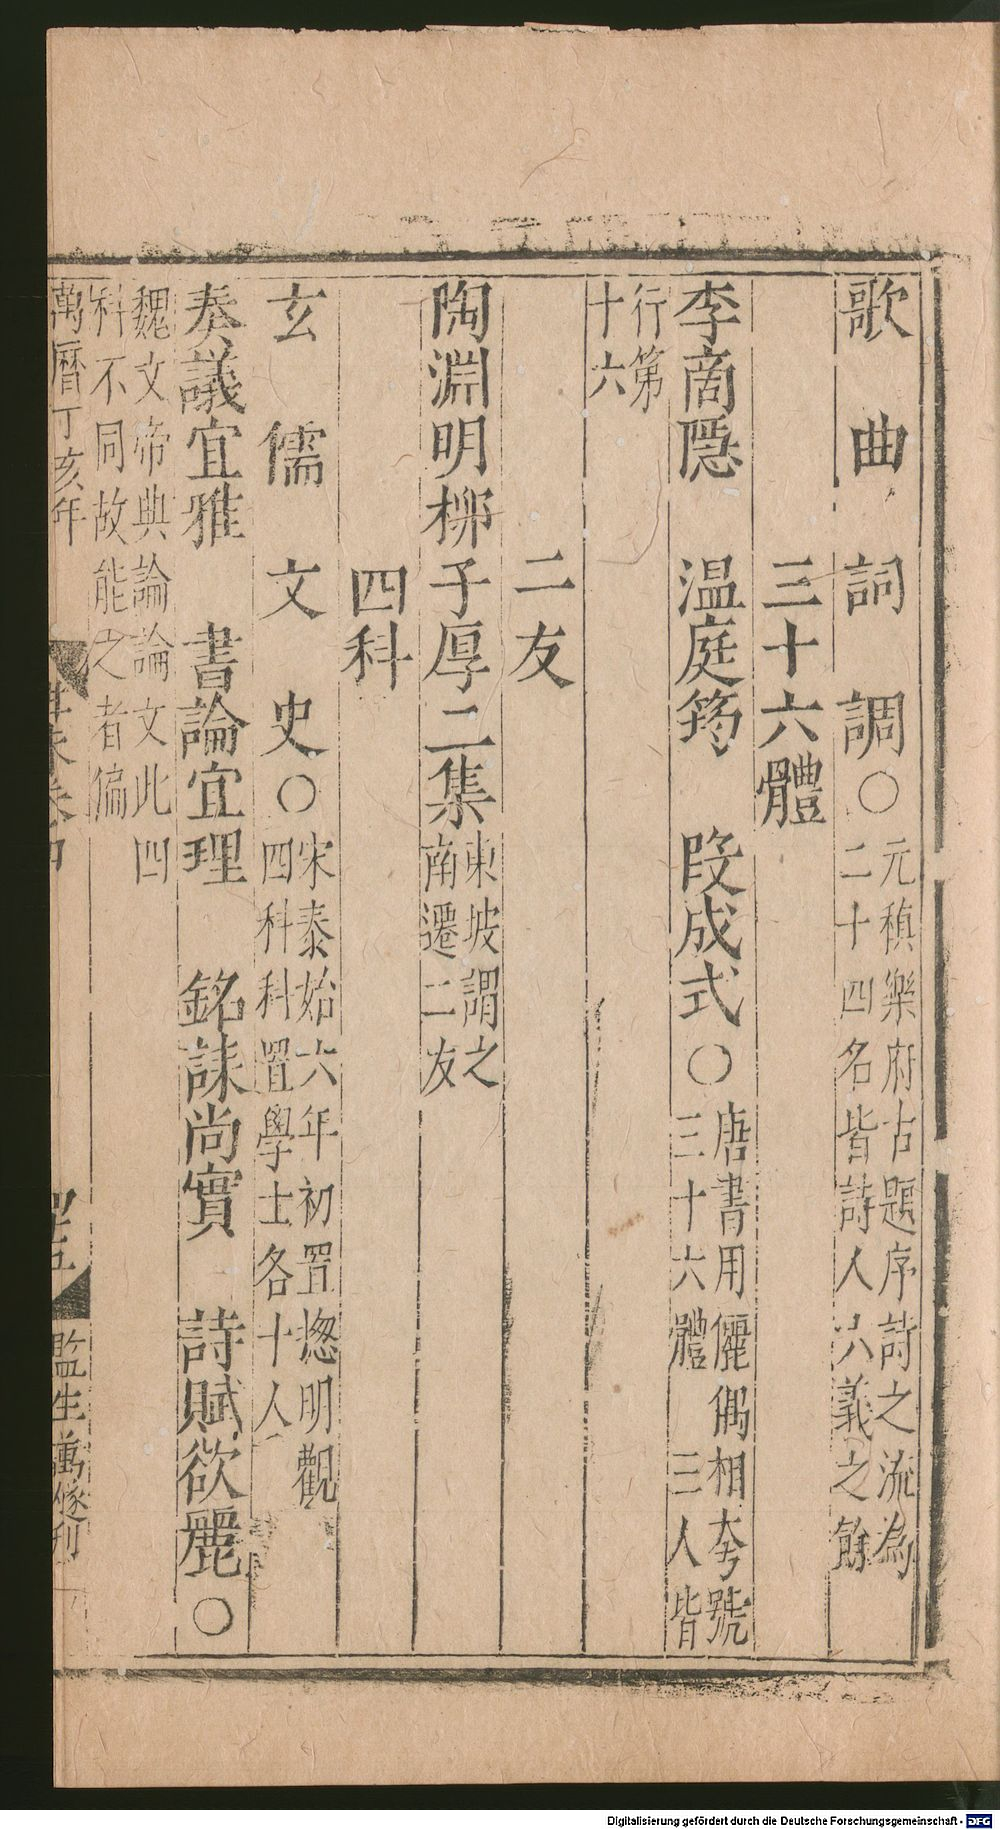 歌　曲　詞　調○元稹樂府古題序詩之流為
二十四名皆詩人六義之餘
三十六體
李商隱　温庭筠　段成式○唐書用儷偶相夸號
三十六體　三人皆
行第
十六
二友
陶淵明柳子厚二集東坡謂之
南遷二友
四科
玄　儒　文　史○宋泰始六年初置緫明觀
四科科置學士各十人
奏議宜雅　書論宜理　銘誄尚實　詩賦欲麗○
魏文帝典論論文此四
科不同故能之者偏
萬曆丁亥年
監生萬燧刊
Digitalisierung gefördert durch die Deutsche Forschungsgemeinschaft - DFG